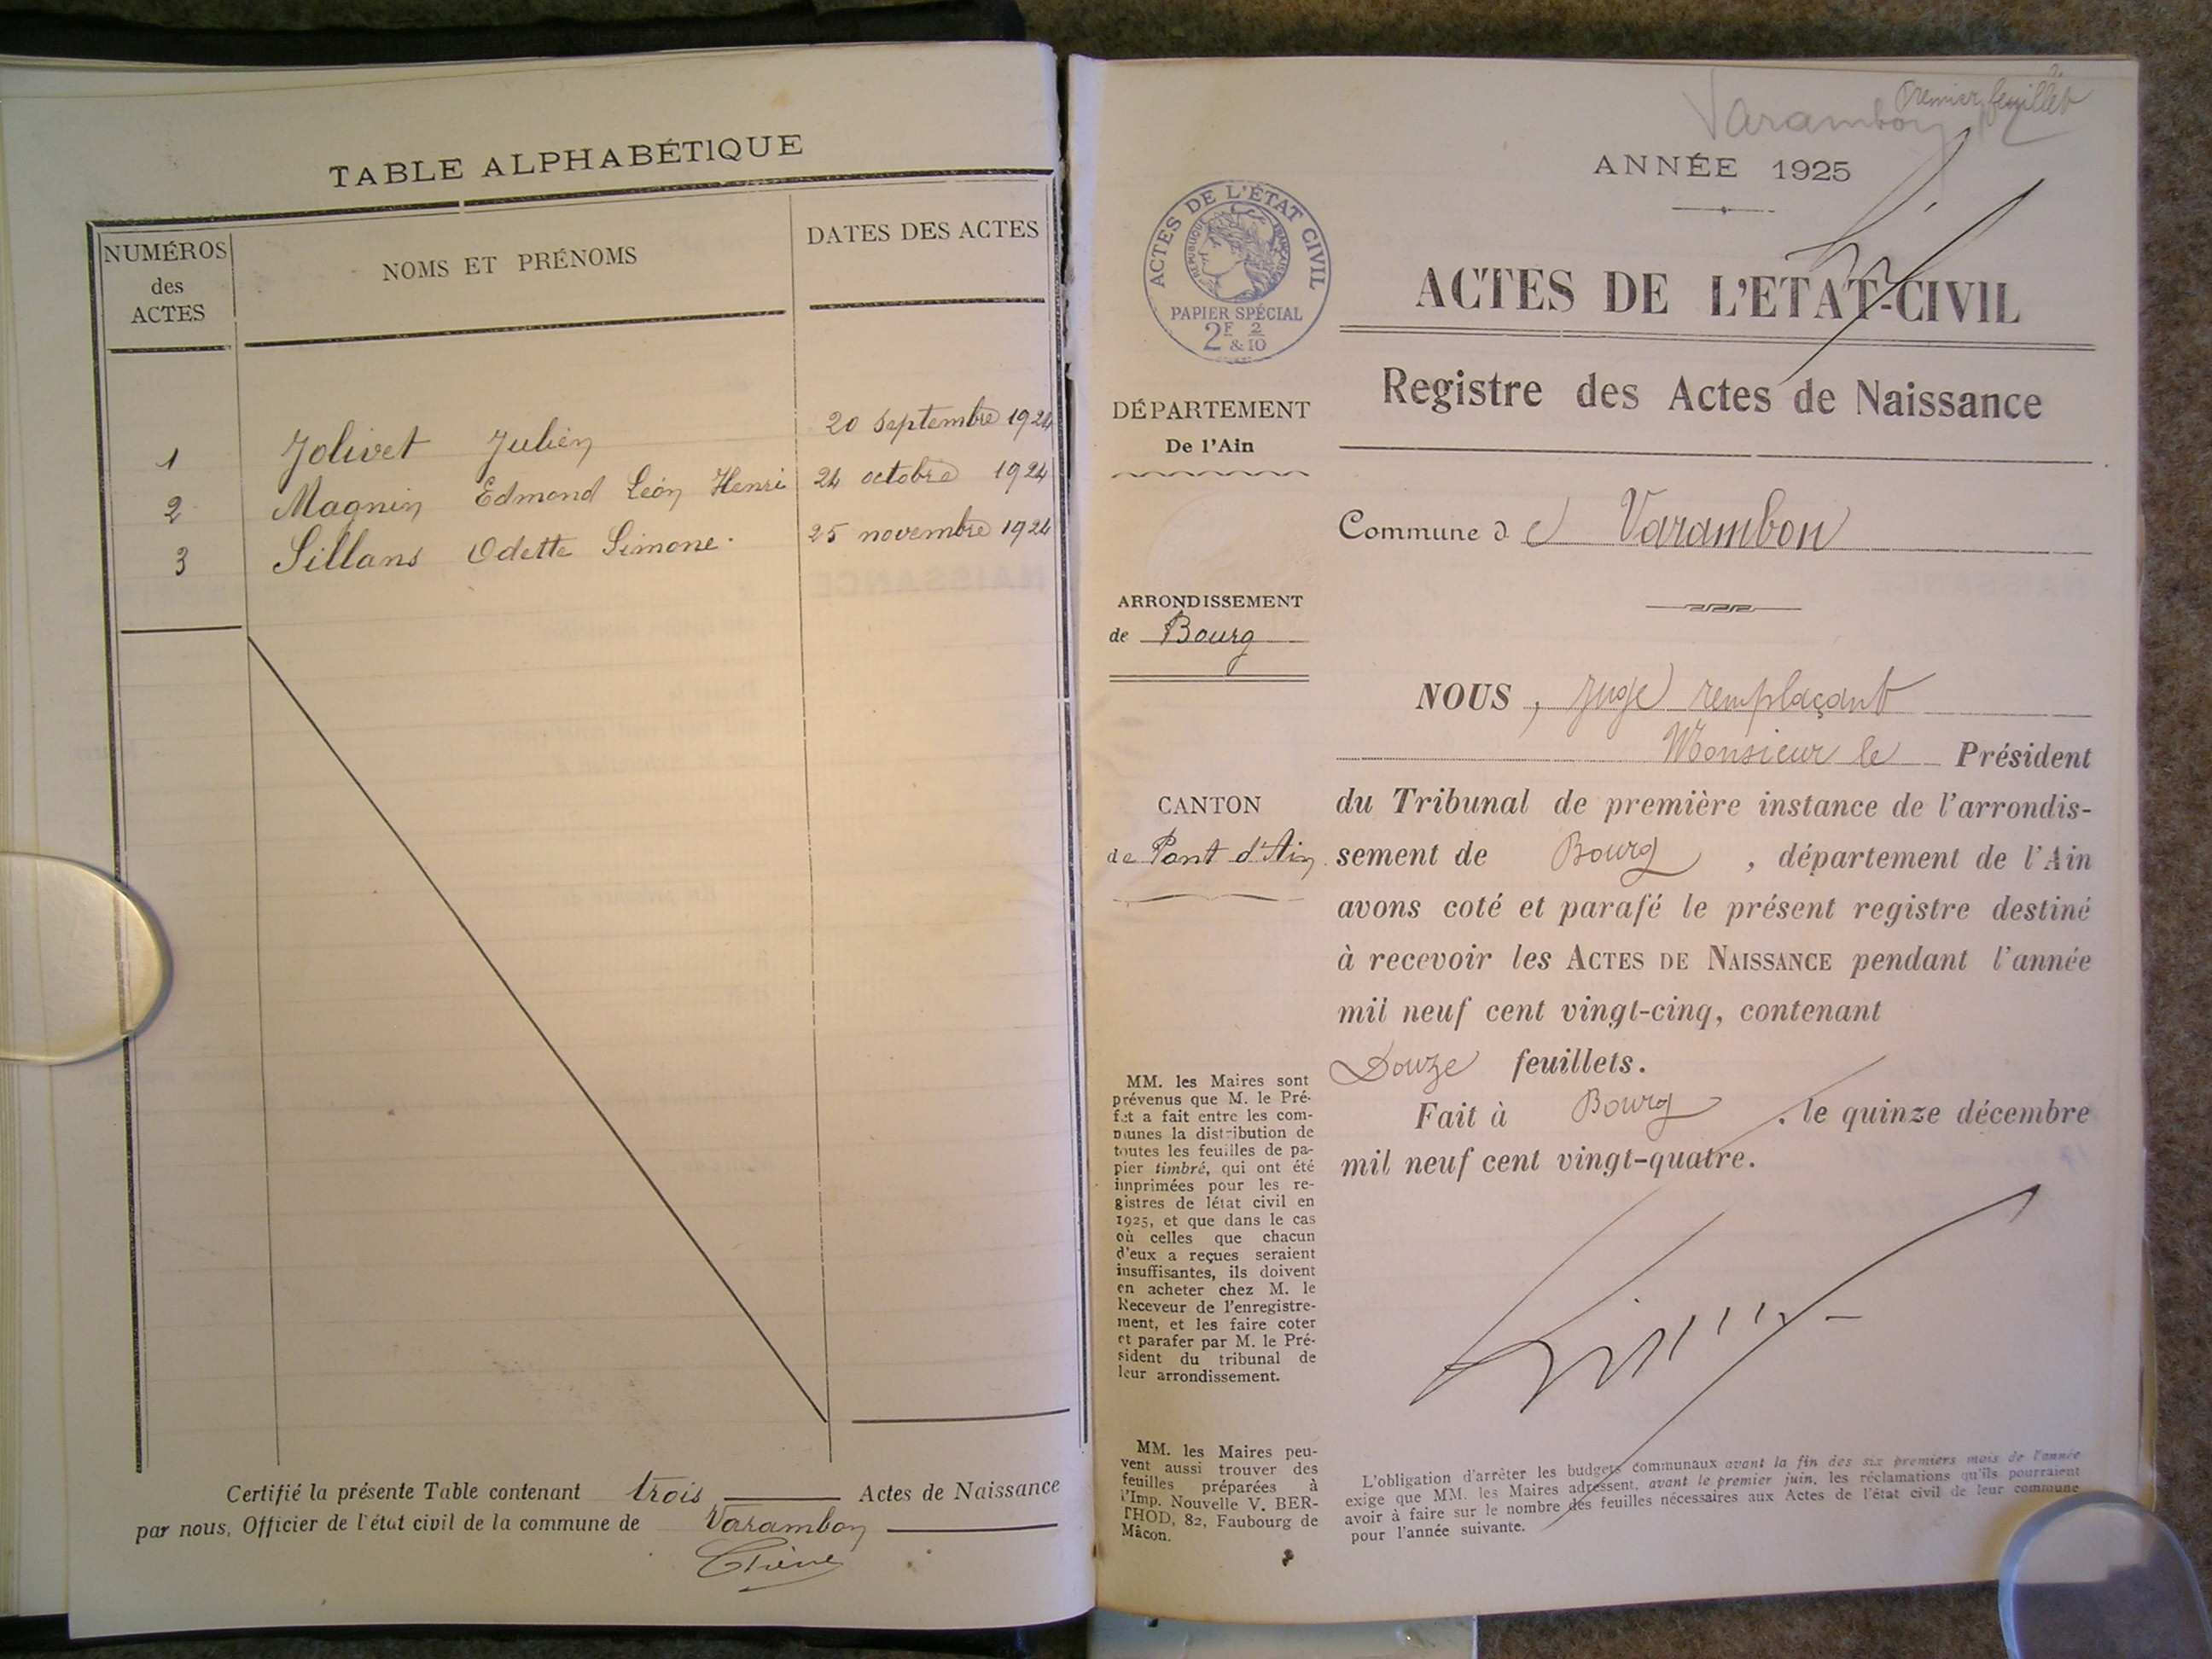 TABLE ALPHABÉTIQUE
NUMÉROS
des
ACTES
NOMS ET PRÉNOMS
DATES DES ACTES
1 Jolivet Julien 20 septembre 1924
2 Magnin Edmond Léon Henri 24 octobre 1924
3 Sillans Odette Simone. 25 novembre 1924
Certifié la présente Table contenant trois Actes de Naissance
par nous, Officier de l'état civil de la commune de Varambon
Varambon
Premier feuillet
ANNÉE 1925
ACTES DE L'ÉTAT CIVIL
RÉPUBLIQUE FRANÇAISE
PAPIER SPÉCIAL
2F & 2/10
ACTES DE L'ETAT-CIVIL
Registre des Actes de Naissance
DÉPARTEMENT
De l'Ain
Commune de Varambon
ARRONDISSEMENT
de Bourg
CANTON
de Pont d'Ain
NOUS, juge remplaçant
Monsieur le Président
du Tribunal de première instance de l'arrondis-
sement de Bourg, département de l'Ain
avons coté et parafé le présent registre destiné
à recevoir les ACTES DE NAISSANCE pendant l'année
mil neuf cent vingt-cinq, contenant
Douze feuillets.
Fait à Bourg, le quinze décembre
mil neuf cent vingt-quatre.
MM. les Maires sont
prévenus que M. le Pré-
fet a fait entre les com-
munes la distribution de
toutes les feuilles de pa-
pier timbré, qui ont été
imprimées pour les re-
gistres de létat civil en
1925, et que dans le cas
où celles que chacun
d'eux a reçues seraient
insuffisantes, ils doivent
en acheter chez M. le
Receveur de l'enregistre-
ment, et les faire coter
et parafer par M. le Pré-
sident du tribunal de
leur arrondissement.
MM. les Maires peu-
vent aussi trouver des
feuilles préparées à
l'Imp. Nouvelle V. BER-
THOD, 82, Faubourg de
Mâcon.
L'obligation d'arrêter les budgets communaux avant la fin des six premiers mois de l'année
exige que MM. les Maires adressent, avant le premier juin, les réclamations qu'ils pourraient
avoir à faire sur le nombre des feuilles nécessaires aux Actes de l'état civil de leur commune
pour l'année suivante.